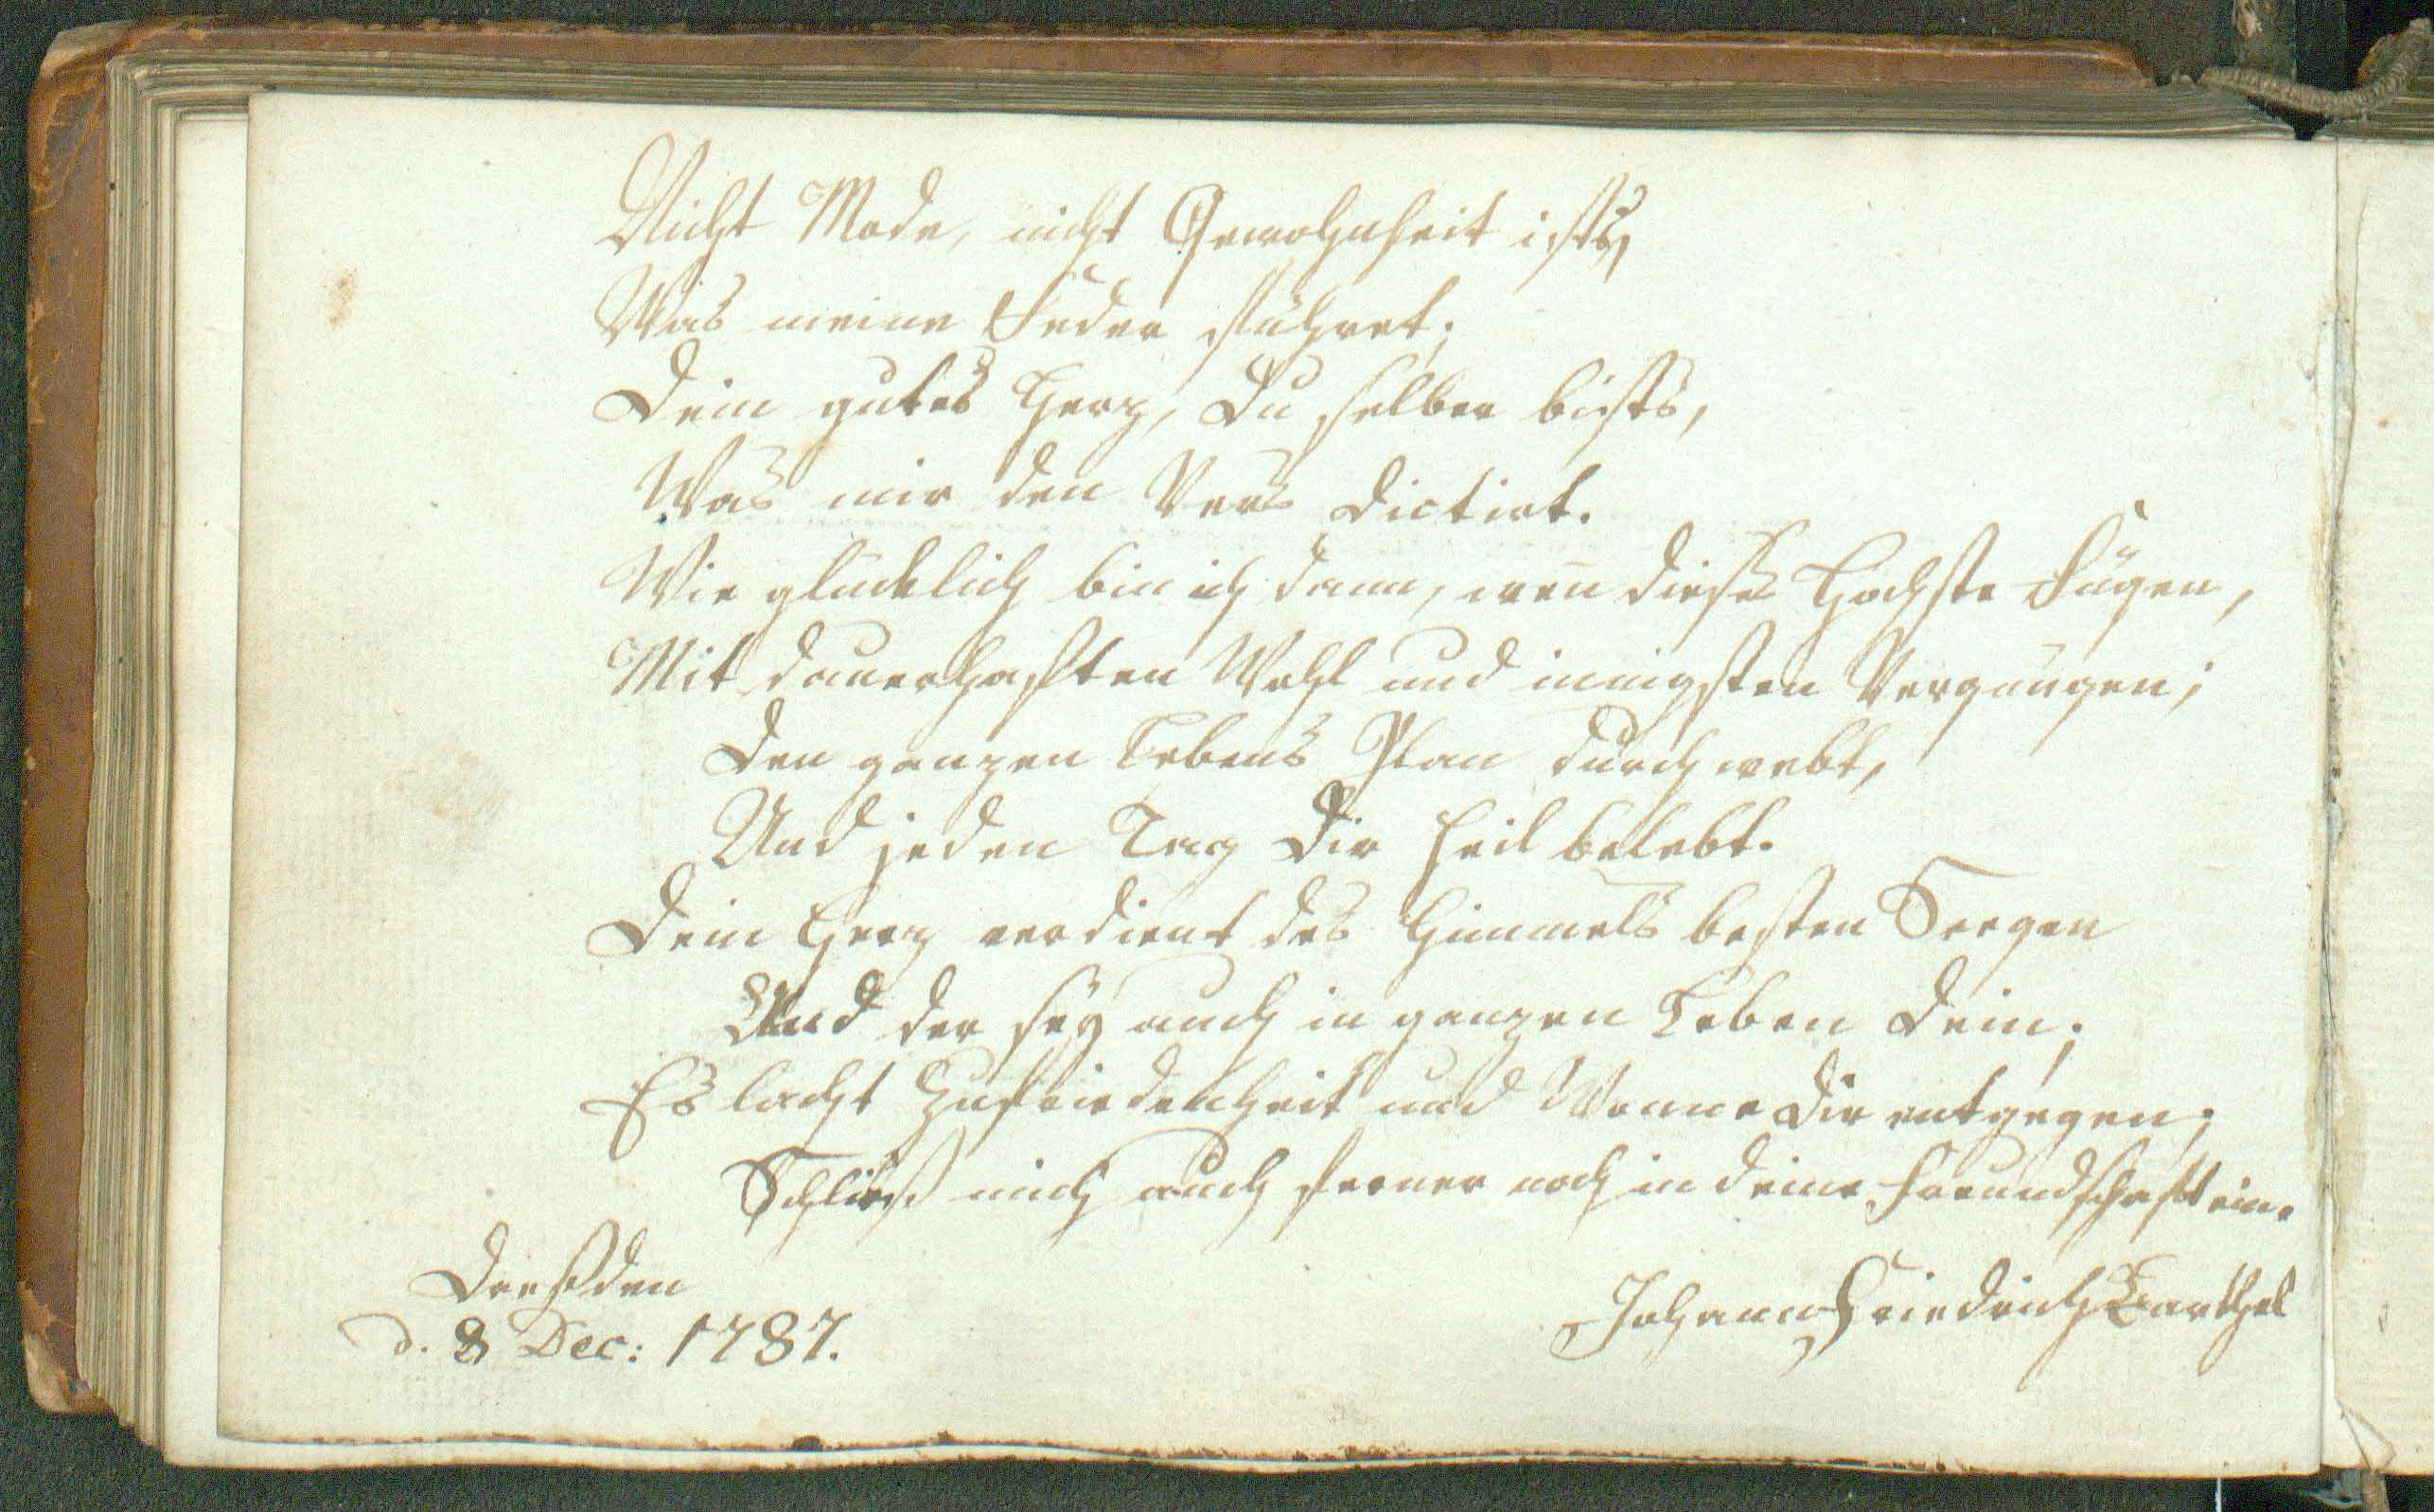 Nicht Mode, nicht Gewohnheit ists,
Was meine Feder führet;
Dein gutes Herz, Du selber bists,
Was mir den Vers dictirt.
Wie glücklich bin ich dann, weñ dieses Hochste Fügen,
Mit dauerhaften Wohl und innigsten Vergnügen;
Den ganzen Lebens Plan durch webt,
Und jeden Tag Dir Heil belebt.
Dein Herz verdient des Himmels besten Seegen
Und der seÿ auch in ganzen Leben Dein;
Es lacht Zufriedenheit und Wonne Dir entgegen;
Schließ mich auch ferner noch in deine Freundschaft ein.
Dreßden
d. 8 Dec: 1787.
Johann Friedrich Barthel